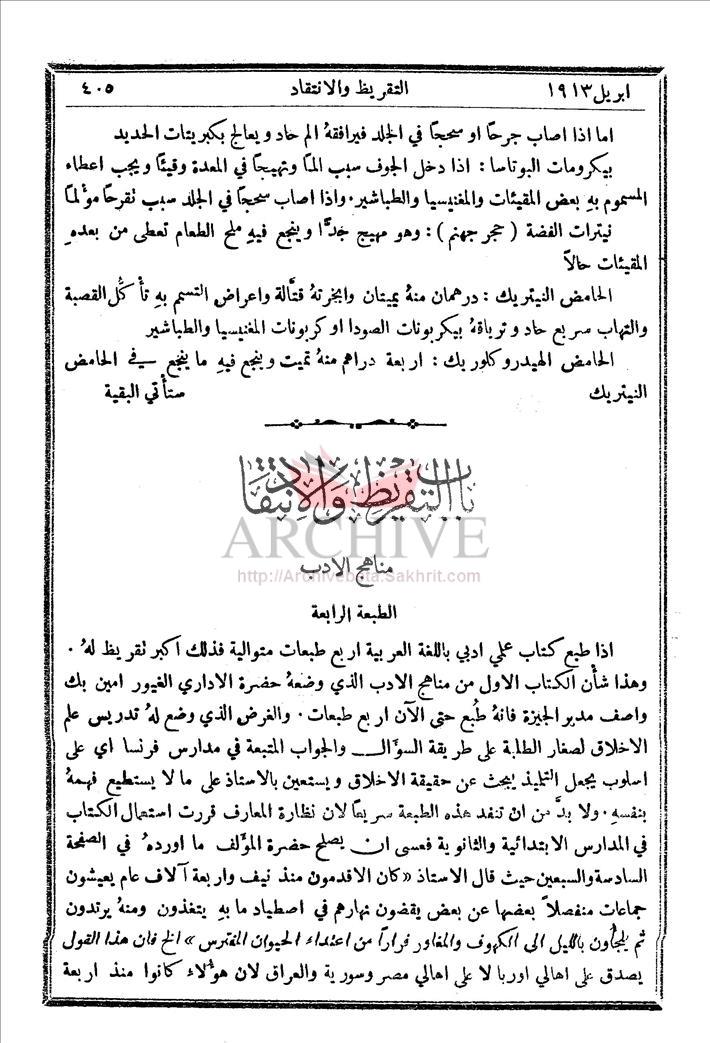 ابريل ١٩١٣ التقريظ والانتقاد ٤٠٥
اما اذا اصاب جرحًا او سحجًا في الجلد فيرافقهُ الم حاد ويعالج بكبريتات الحديد
بيكرومات البوتاسا : اذا دخل الجوف سبب المًا وتهيجًا في المعدة وقيئًا ويجب اعطاء
المسموم بهِ بعض المقيئات والمغنيسيا والطباشير . واذا اصاب سحجًا في الجلد سبب تقرحًا مؤلمًا
نيترات الفضة ( حجر جهنم ) : وهو مهيج جدًّا وينجع فيهِ ملح الطعام تعطى من بعدهِ
المقيئات حالاً
الحامض النيتريك : درهمان منهُ يميتان وابخرتهُ قتَّالة واعراض التسمم بهِ تأكُّل القصبة
والتهاب سريع حاد وترياقهُ بيكربونات الصودا او كربونات المغنيسيا والطباشير
الحامض الهيدروكلوريك : اربعة دراهم منهُ تميت وينجع فيهِ ما ينجع في الحامض
النيتريك ستأتي البقية
باب التقريظ والانتقاد
ARCHIVE
مناهج الادب
http://Archivebeta.Sakhrit.com
الطبعة الرابعة
اذا طبع كتاب علمي ادبي باللغة العربية اربع طبعات متوالية فذلك اكبر تقريظ لهُ .
وهذا شأن الكتاب الاول من مناهج الادب الذي وضعهُ حضرة الاداري الغيور امين بك
واصف مدير الجيزة فانهُ طُبع حتى الآن اربع طبعات . والغرض الذي وضع لهُ تدريس علم
الاخلاق لصغار الطلبة على طريقة السؤال والجواب المتبعة في مدارس فرنسا اي على
اسلوب يجعل التلميذ يبحث عن حقيقة الاخلاق ويستعين بالاستاذ على ما لا يستطيع فهمهُ
بنفسهِ . ولا بدَّ من ان تنفد هذه الطبعة سريعًا لان نظارة المعارف قررت استعمال الكتاب
في المدارس الابتدائية والثانوية فعسى ان يصلح حضرة المؤلف ما اوردهُ في الصفحة
السادسة والسبعين حيث قال الاستاذ « كان الاقدمون منذ نيف واربعة آلاف عام يعيشون
جماعات منفصلاً بعضها عن بعض يقضون نهارهم في اصطياد ما بهِ يتغذون ومنهُ يرتدون
ثم يلجأون بالليل الى الكهوف والمغاور فرارًا من اعتداء الحيوان المفترس » الخ فان هذا القول
يصدق على اهالي اوربا لا على اهالي مصر وسورية والعراق لان هؤلاء كانوا منذ اربعة